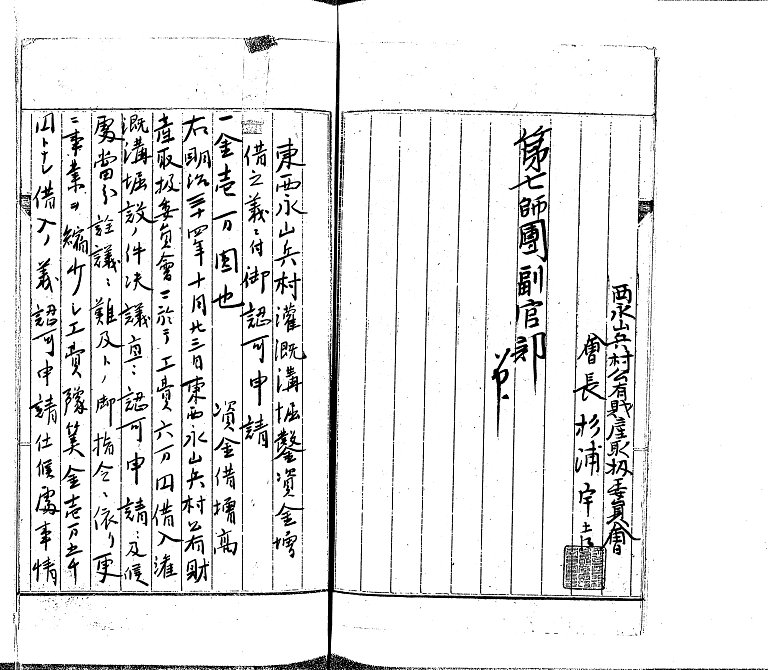 西永山兵村公有財産取扱委員會
會長 杉浦宇吉
第七師團副官部
東西永山兵村灌漑溝堀鑿資金増
借之義ニ付御認可申請
一金壱万圓也 資金借増高
右明治三十四年十月廿三日東西永山兵村公有財
産取扱委員會ニ於テ工費六万円借入灌
漑溝堀設ノ件決議直ニ認可申請ニ及候
處當分詮議ニ難及トノ御指令ニ依リ更
ニ事業ヲ縮少シ工費豫算金壱万五千
円トナシ借入ノ義認可申請仕候處事情